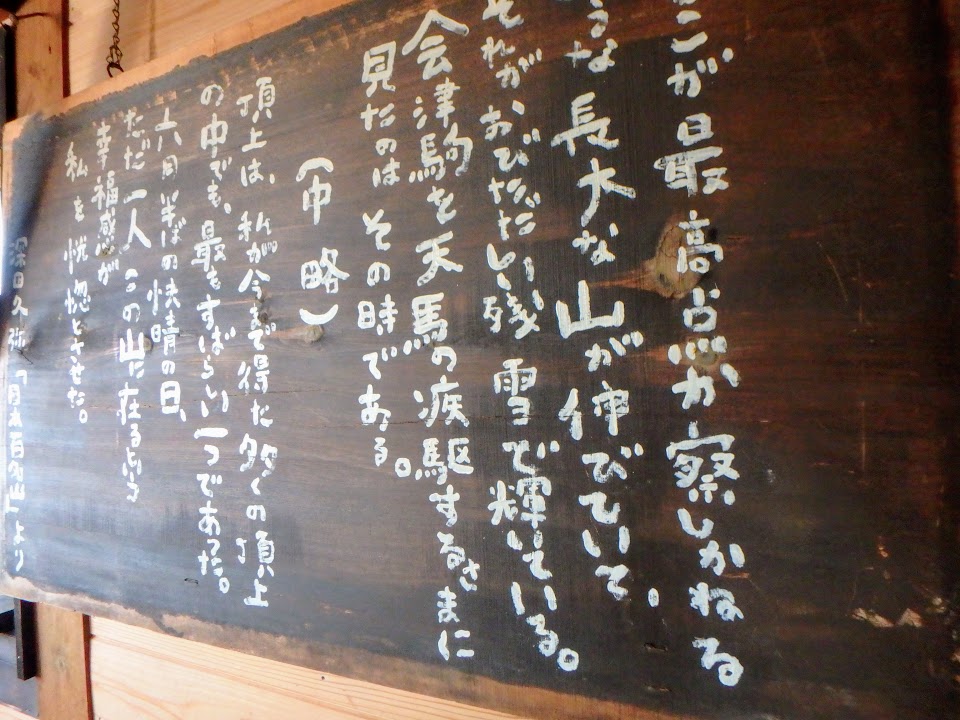 こが最高点か察しかねる
うな長大な山が伸びていて、
それが、おびただしい残雪で輝いている。
会津駒を天馬の疾駆するさまに
見たのは その時である。
（中略）
頂上は、私が今まで得た多くの頂上
の中でも、最もすばらしい一つであった。
六月半ばの快晴の日、
ただ一人この山に在る
幸福感が
私を恍惚とさせた。
深田久弥「日本百名山」より